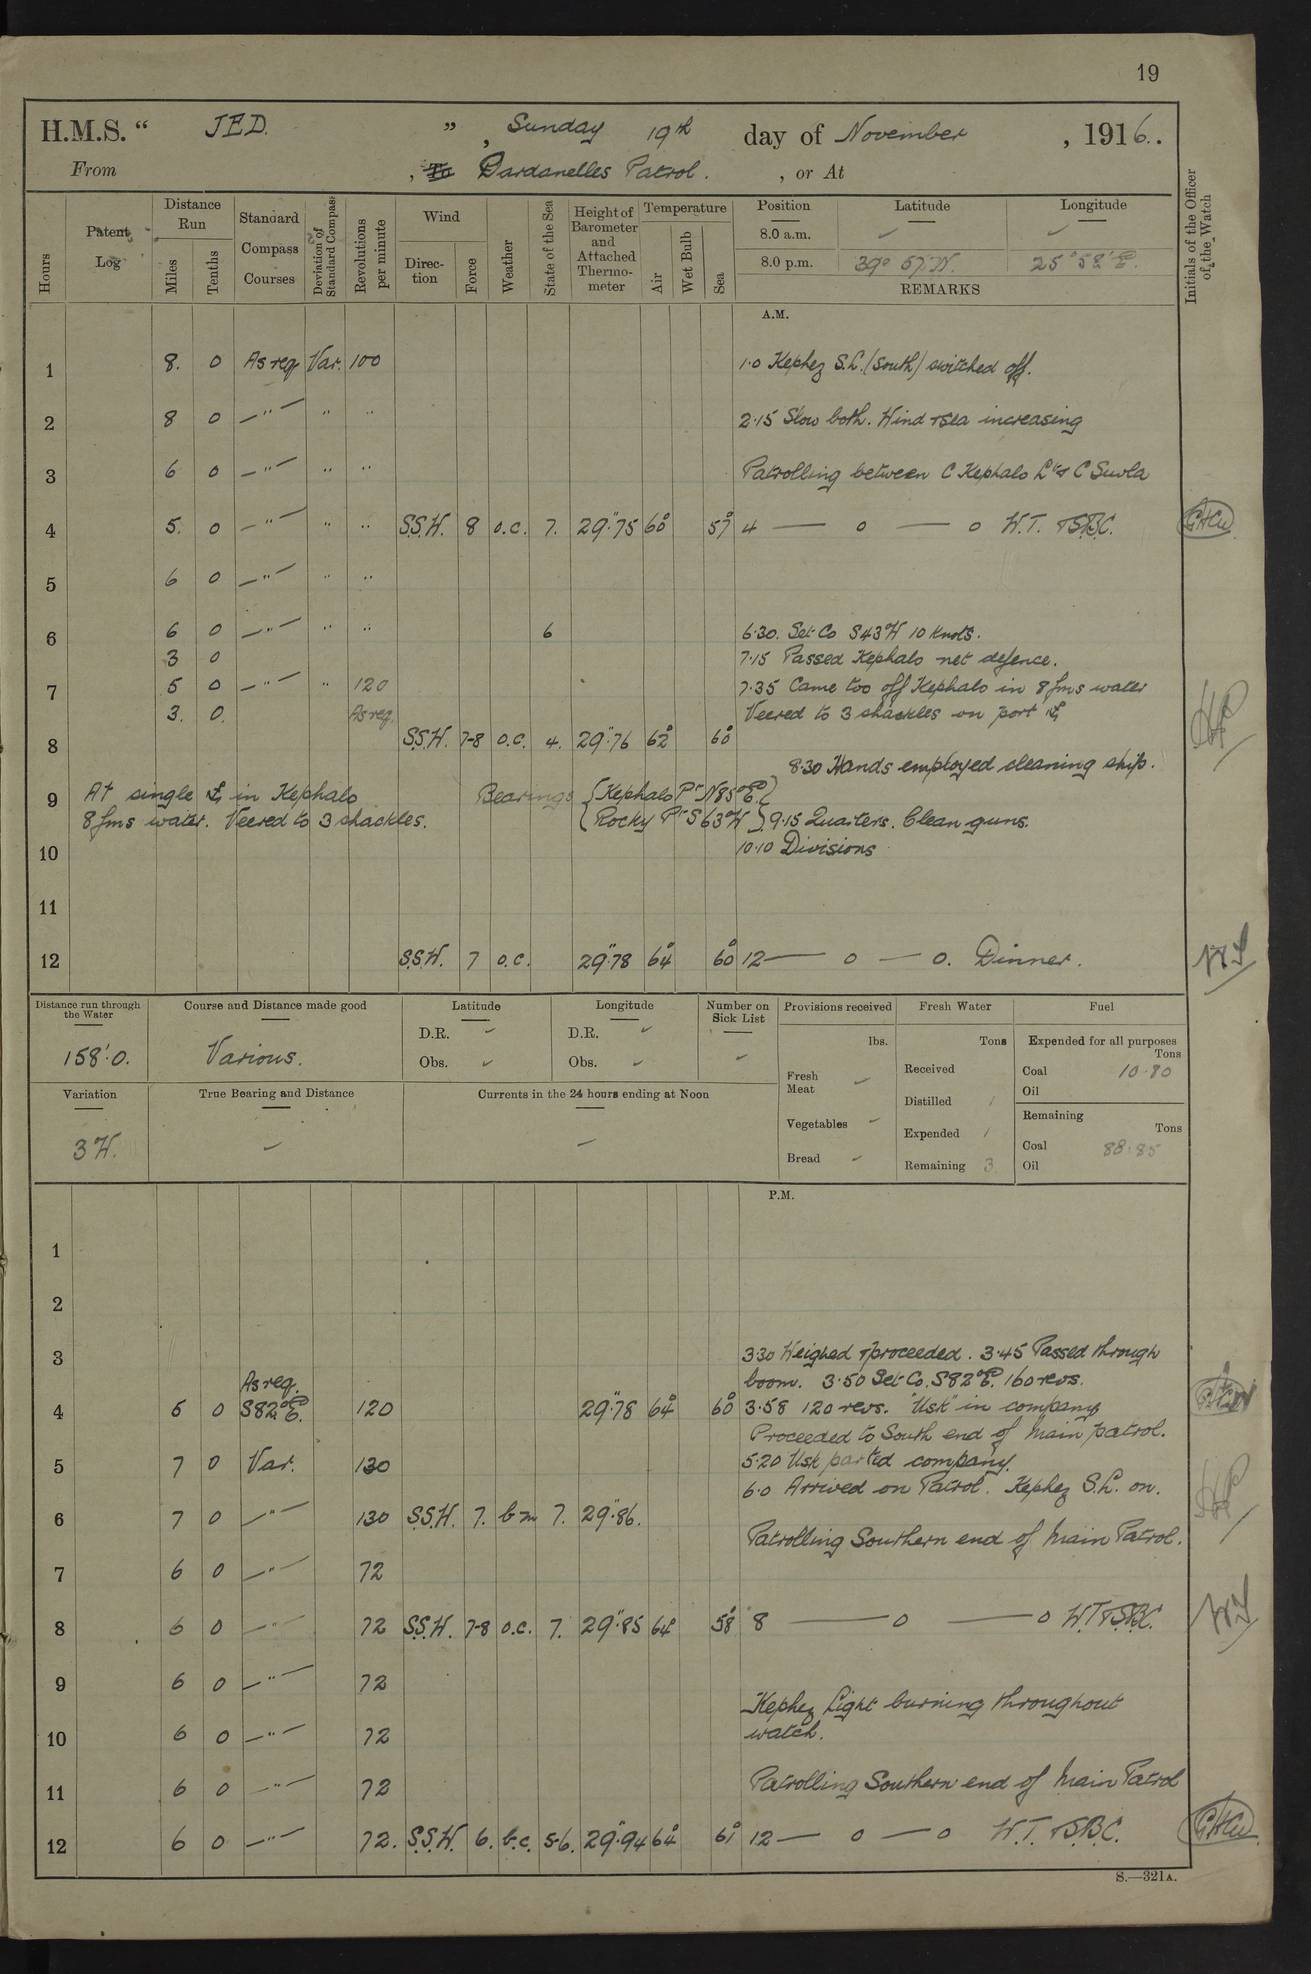 19
H.M.S. " JED. " , Sunday 19th day of November , 1916..
From , To Dardanelles Patrol. , or At
Hours Patent Log Distance Run Miles Tenths Standard Compass Courses Deviation of Standard Compass Revolutions per minute Wind Direction Force Weather State of the Sea Height of Barometer and Attached Thermometer Temperature Air Wet Bulb Sea Position Latitude Longitude Initials of the Officer of the Watch
8.0 a.m. ✓ ✓
8.0 p.m. 39° 57' N. 25° 58' E.
REMARKS
A.M.
1 8. 0 As req Var. 100 1.0 Kephez S.L. (South) switched off.
2 8 0 —"— " " 2.15 Slow both. Wind & sea increasing
3 6 0 —"— " " Patrolling between C Kephalo Lt & C Suvla
4 5. 0 —"— " " S.S.W. 8 o.c. 7. 29".75 60° 57° 4 — o — o W.T. & S.B.C.
5 6 0 —"— " "
6 6 0 —"— " " 6 6.30. Set Co S43°W 10 Knots.
3 0 7.15 Passed Kephalo net defence.
7 5 0 —"— " 120 7.35 Came too off Kephalo in 8 fms water
3. 0. As req. Veered to 3 shackles on port ⚓
8 S.S.W. 7-8 o.c. 4. 29".76 62° 60°
8.30 Hands employed cleaning ship.
9 At single ⚓ in Kephalo Bearings { Kephalo Pt N85°E. }
8 fms water. Veered to 3 shackles. { Rocky Pt S63°W } 9.15 Quarters. Clean guns.
10 10.10 Divisions
11
12 S.S.W. 7 o.c. 29".78 64° 60° 12 — o — o. Dinner.
Distance run through the Water Course and Distance made good Latitude Longitude Number on Sick List Provisions received Fresh Water Fuel
158'.0. Various. D.R. ✓ D.R. ✓ lbs. Tons Expended for all purposes Tons
Obs. ✓ Obs. ✓ ✓ Fresh Meat ✓ Received Coal 10.80
Oil
Variation True Bearing and Distance Currents in the 24 hours ending at Noon Vegetables ✓ Distilled / Remaining Tons
3 W. Bread ✓ Expended / Coal 88.85
Remaining 3. Oil
P.M.
1
2
3 3.30 Weighed & proceeded. 3.45 Passed through
As req. boom. 3.50 Set Co. S82°E. 160 revs.
4 5 0 S82°E. 120 29".78 64° 60° 3.58 120 revs. "Usk" in company
Proceeded to South end of Main patrol.
5 7 0 Var. 130 5.20 Usk parted company.
6.0 Arrived on Patrol. Kephez S.L. on.
6 7 0 —"— 130 S.S.W. 7. b m 7. 29".86.
Patrolling Southern end of Main Patrol.
7 6 0 —"— 72
8 6 0 —"— 72 S.S.W. 7-8 o.c. 7. 29".85 64° 58° 8 — o — o W.T. & S.B.C.
9 6 0 —"— 72
Kephez Light burning throughout
10 6 0 —"— 72 watch.
11 6 0 —"— 72 Patrolling Southern end of Main Patrol
12 6 0 —"— 72. S.S.W. 6. b.c. 5-6. 29".94 64° 61° 12 — o — o W.T. & S.B.C.
S.—321A.